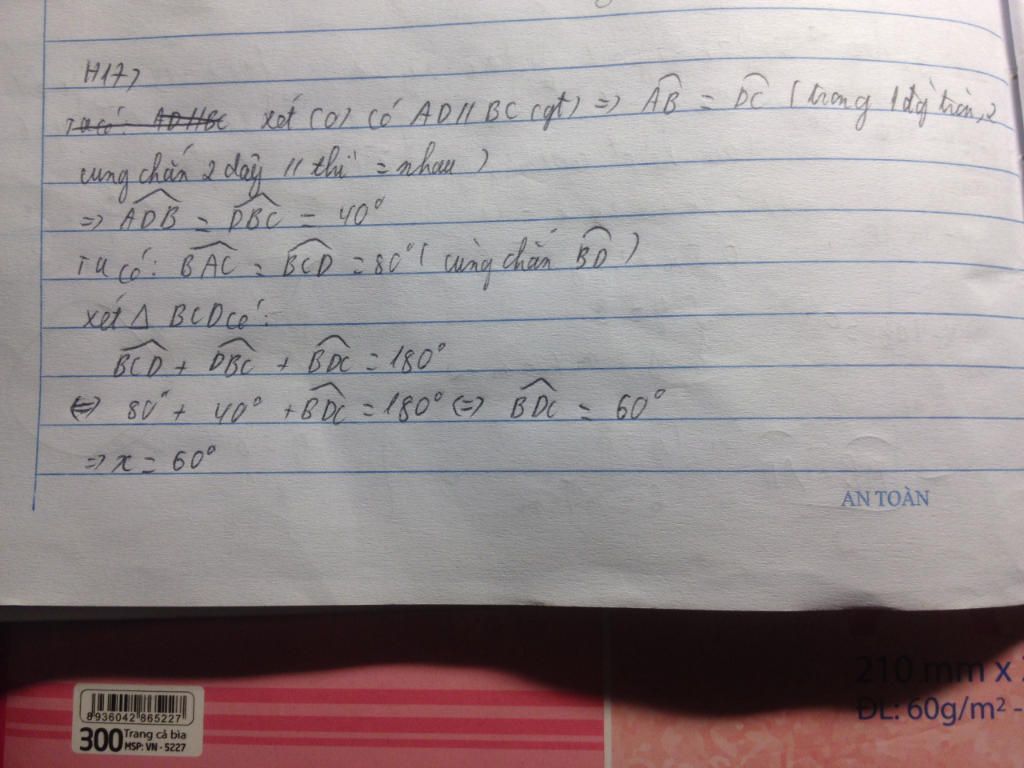 H17,
Ta có: AD//BC xét (O) có AD // BC (gt) => AB = DC (trong 1 đg tròn, 2
cung chắn 2 dây // thì = nhau)
=> ADB = DBC = 40°
Ta có: BAC = BCD = 80° ( cùng chắn BD )
xét Δ BCD có:
BCD + DBC + BDC = 180°
<=> 80° + 40° + BDC = 180° <=> BDC = 60°
=> x = 60°
AN TOÀN
210 mm x 2
ĐL: 60g/m² -
8936042 865227
300 Trang cả bìa
MSP: VN - 5227